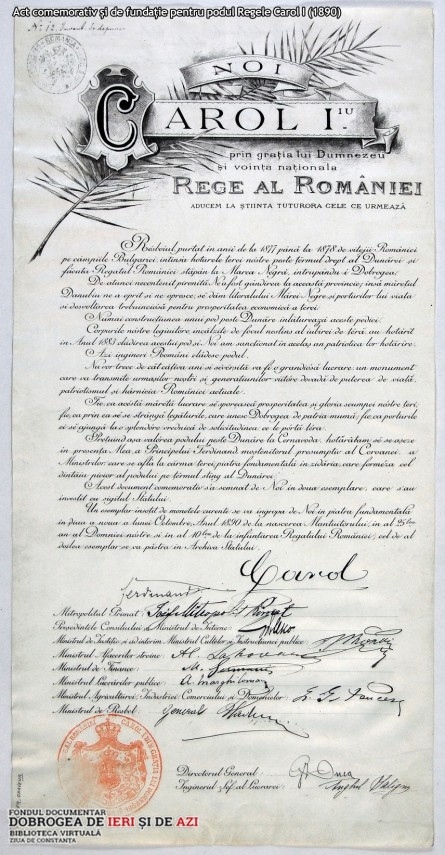 Act comemorativ și de fundație pentru podul Regele Carol I (1890)
NOI
CAROL I.IU
prin grația lui Dumnezeu
și voința naționala
REGE AL ROMÂNIEI
ADUCEM LA ȘTIINTA TUTURORA CELE CE URMEAZĂ
Resboiul purtat in anii de la 1877 până la 1878 de vitejii României
pe câmpiile Bulgariei, intinse hotarele terei nóstre peste termul drept al Dunărei si
făcută Regatul României stăpân la Marea Negră, intrupându-i Dobrogea.
De alunci necontenit pironită Ne-a fost gândirea la acéstă provincie; insă măretul
Danubiu ne a oprit si ne opresce, se dăm litoralului Mărei Negre si porturilor lui viata
si desvoltarea trebuinciósă pentru prosperitatea economică a terei.
Numai constructiunea unui pod peste Dunăre inlăturéză aceste pedici.
Corpurile nóstre legiuitóre, incălzite de focul nestins al iubirei de téră au hotărit
in Anul 1883 clădirea acestui pod si Noi am sanctionat in acelas an patriotica lor hotărire.
Azi ingineri Români clădesc podul.
Nu vor trece de cât câtiva ani si săvărsită va fi o grandiósă lucrare: un monument
care va transmite urmasilor nostri si generatiunilor viitóre dovadă de puterea de viată,
patriotismul si hărnicia României actuale.
Fie, ca acéstă măretă lucrare să sporéscă prosperitatea si gloria scumpei nóstre teri,
fie, ca prin ea să se strângă legăturile, care unesc Dobrogea de patria mumă, fie, ca porturile
ei să ajungă la o splendóre vrednică de solicitudinea ce le pórtă téra.
Pretuind asa valórea podului peste Dunăre la Cernavoda, hotărâtam să se aseze
in presenta Mea, a Principelui Ferdinand mostenitorul presumptiv al Coroanei, a
Ministrilor, care se află la cârma terei, piatra fundamentală in zidăria, care forméză cel
dintâiu picior al podului pe termul stâng al Dunărei.
Acest document comemorativ s'a semnat de Noi in doue exemplare, care s'au
investit cu sigilul Statului.
Un exemplar insotit de monetele curente se va ingropa de Noi in piatra fundamentală
in diua a noua a lunei Octombre, Anul 1890 de la nascerea Mântuitorului, in al 25lea
an al Domniei nóstre si in al 10lea de la infiintarea Regatului României; cel de al
douilea exemplar se va păstra in Archiva Statului.
Carol
Ferdinand
Mitropolitul Primat:
Presedintele Consiliului si Ministrul de Interne
Ministrul de Justitie si ad interim Ministrul Cultelor si Instructiunei publice
Ministrul Afacerilor streine: Al. Lahovari
Ministrul de Finance: M. Germani
Ministrul Lucrărilor publice: A. Marghiloman
Ministrul Agriculturei, Industriei, Comerciului si Domeniilor
Ministrul de Resbel: General Vladescu
Directorul General: G. Duca
Inginerul Sef al Lucrarei: Anghel Saligny
FONDUL DOCUMENTAR
DOBROGEA DE IERI ȘI DE AZI
BIBLIOTECA VIRTUALĂ
ZIUA DE CONSTANȚA